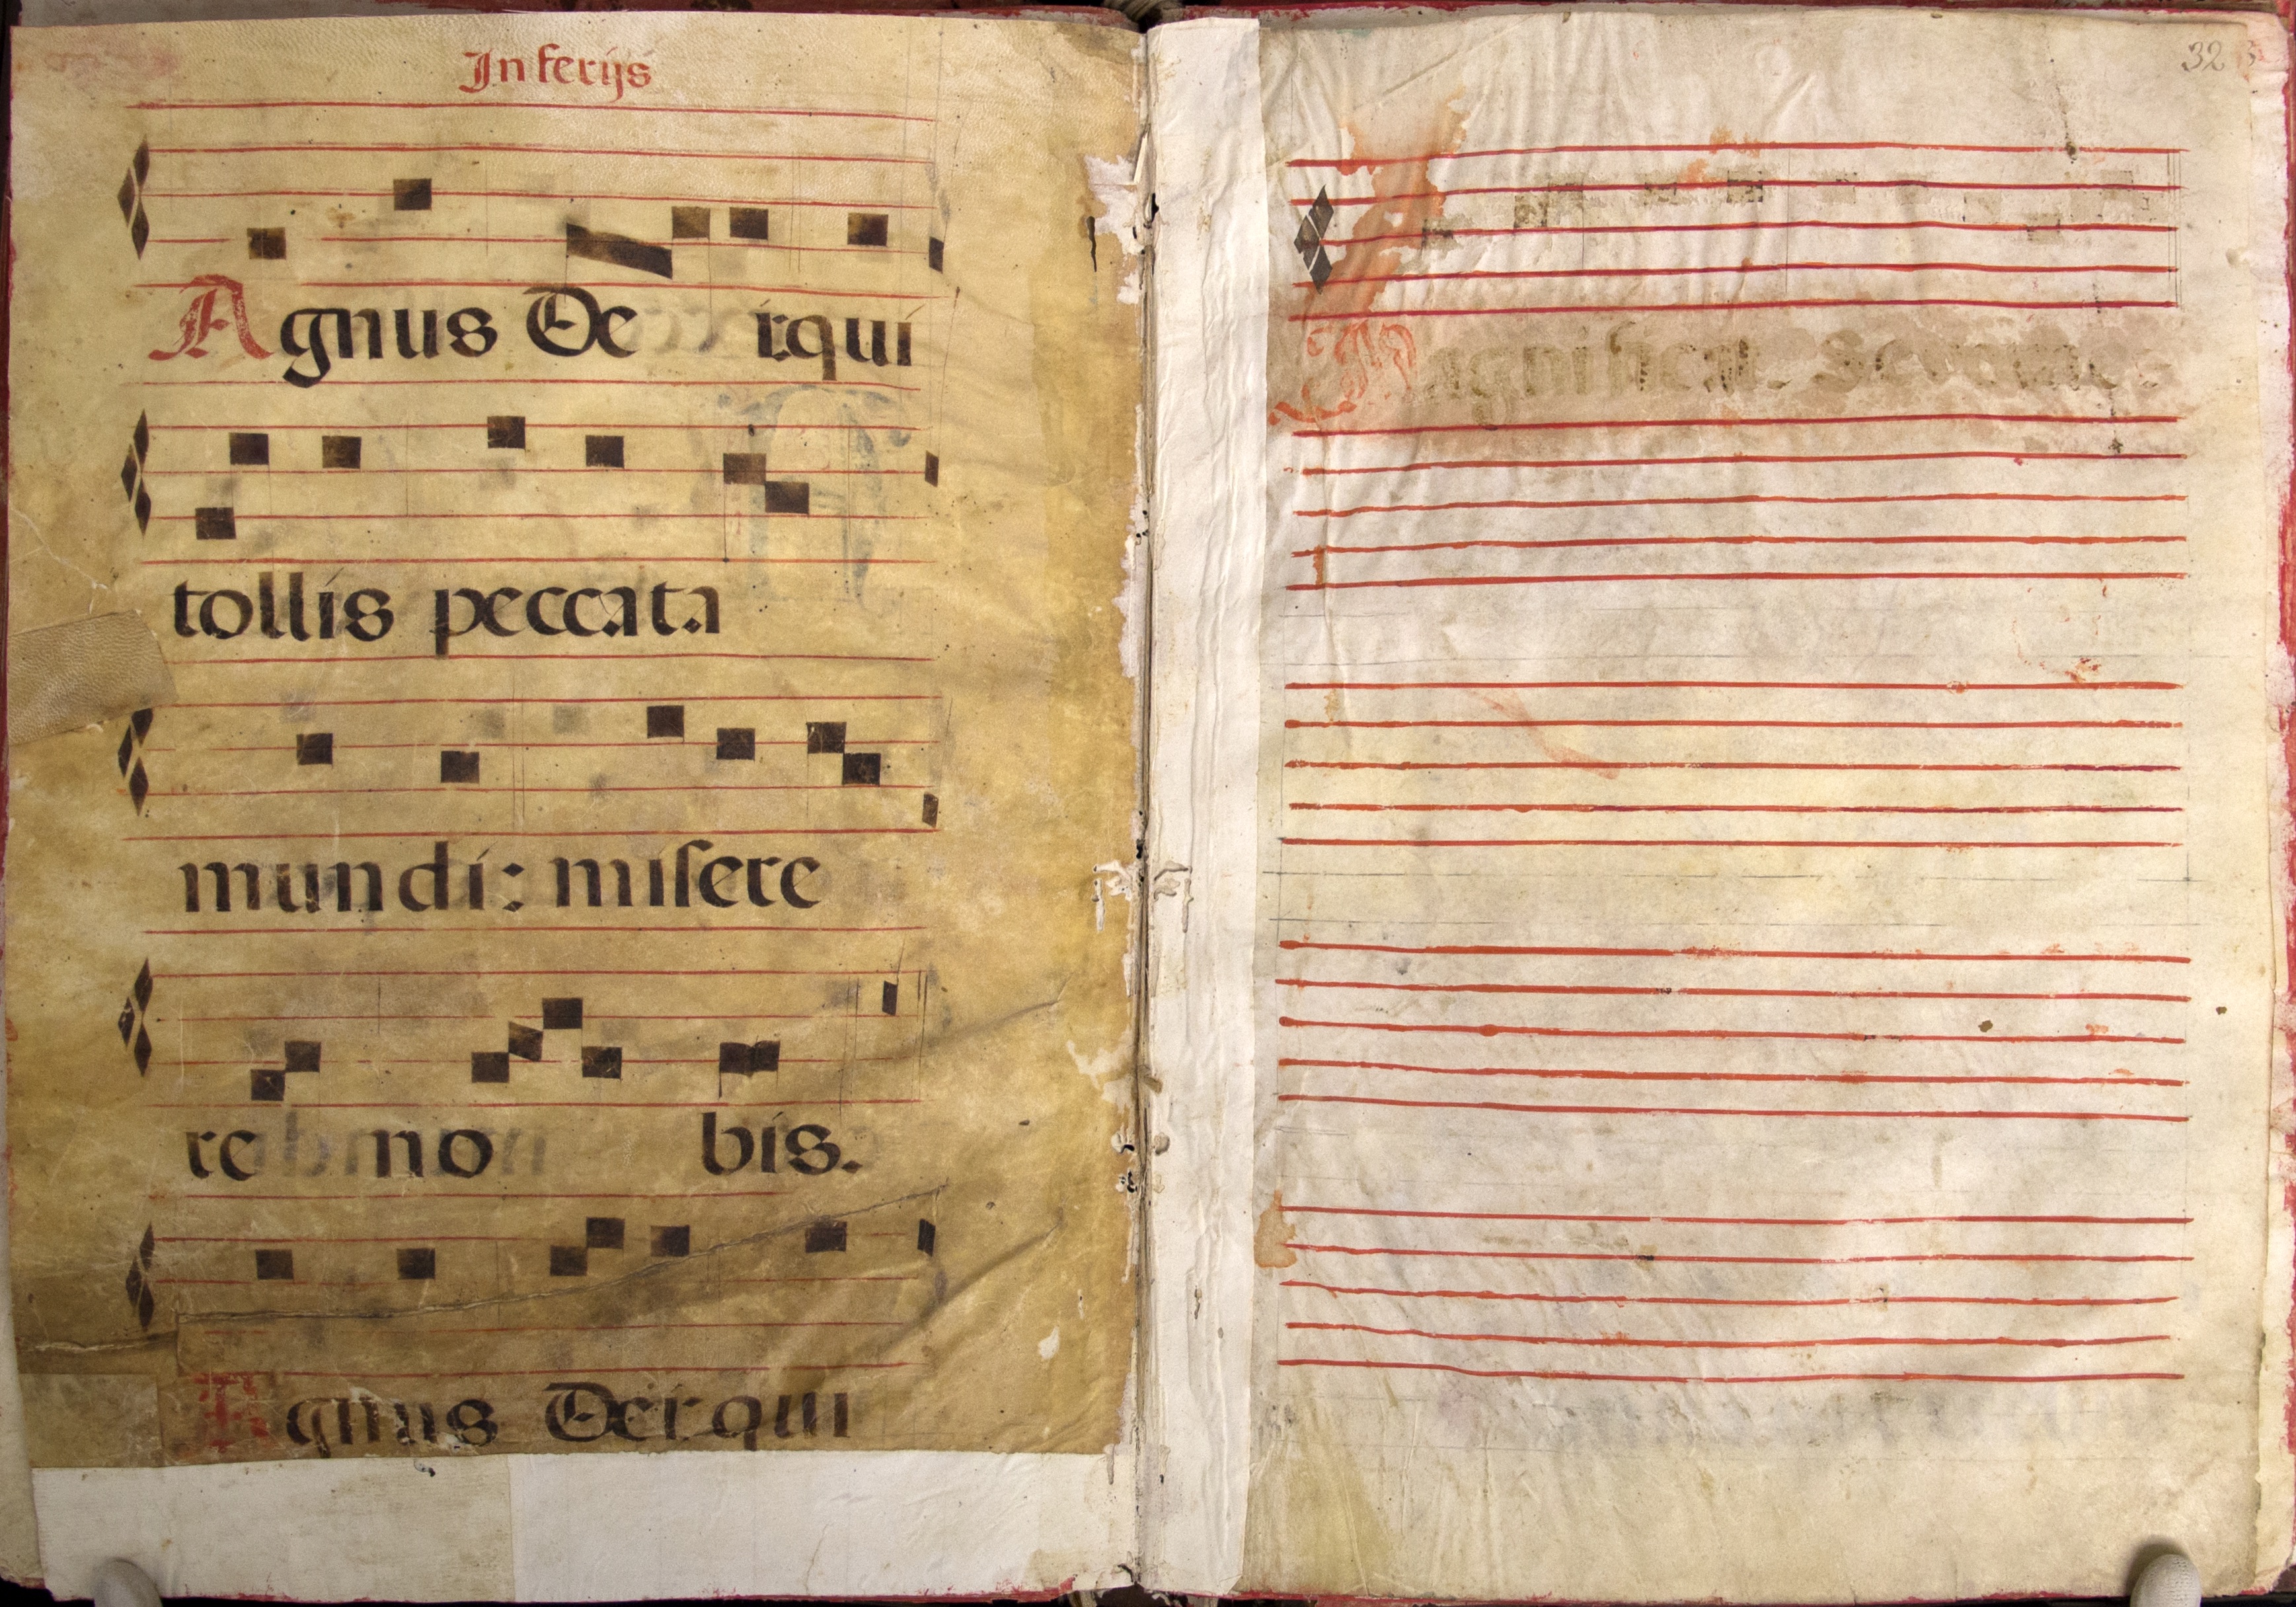 In ferijs
Agnus De i qui
tollis peccata
mundi: misere
re no bis.
Agnus Dei qui
32
Magnificat. Se